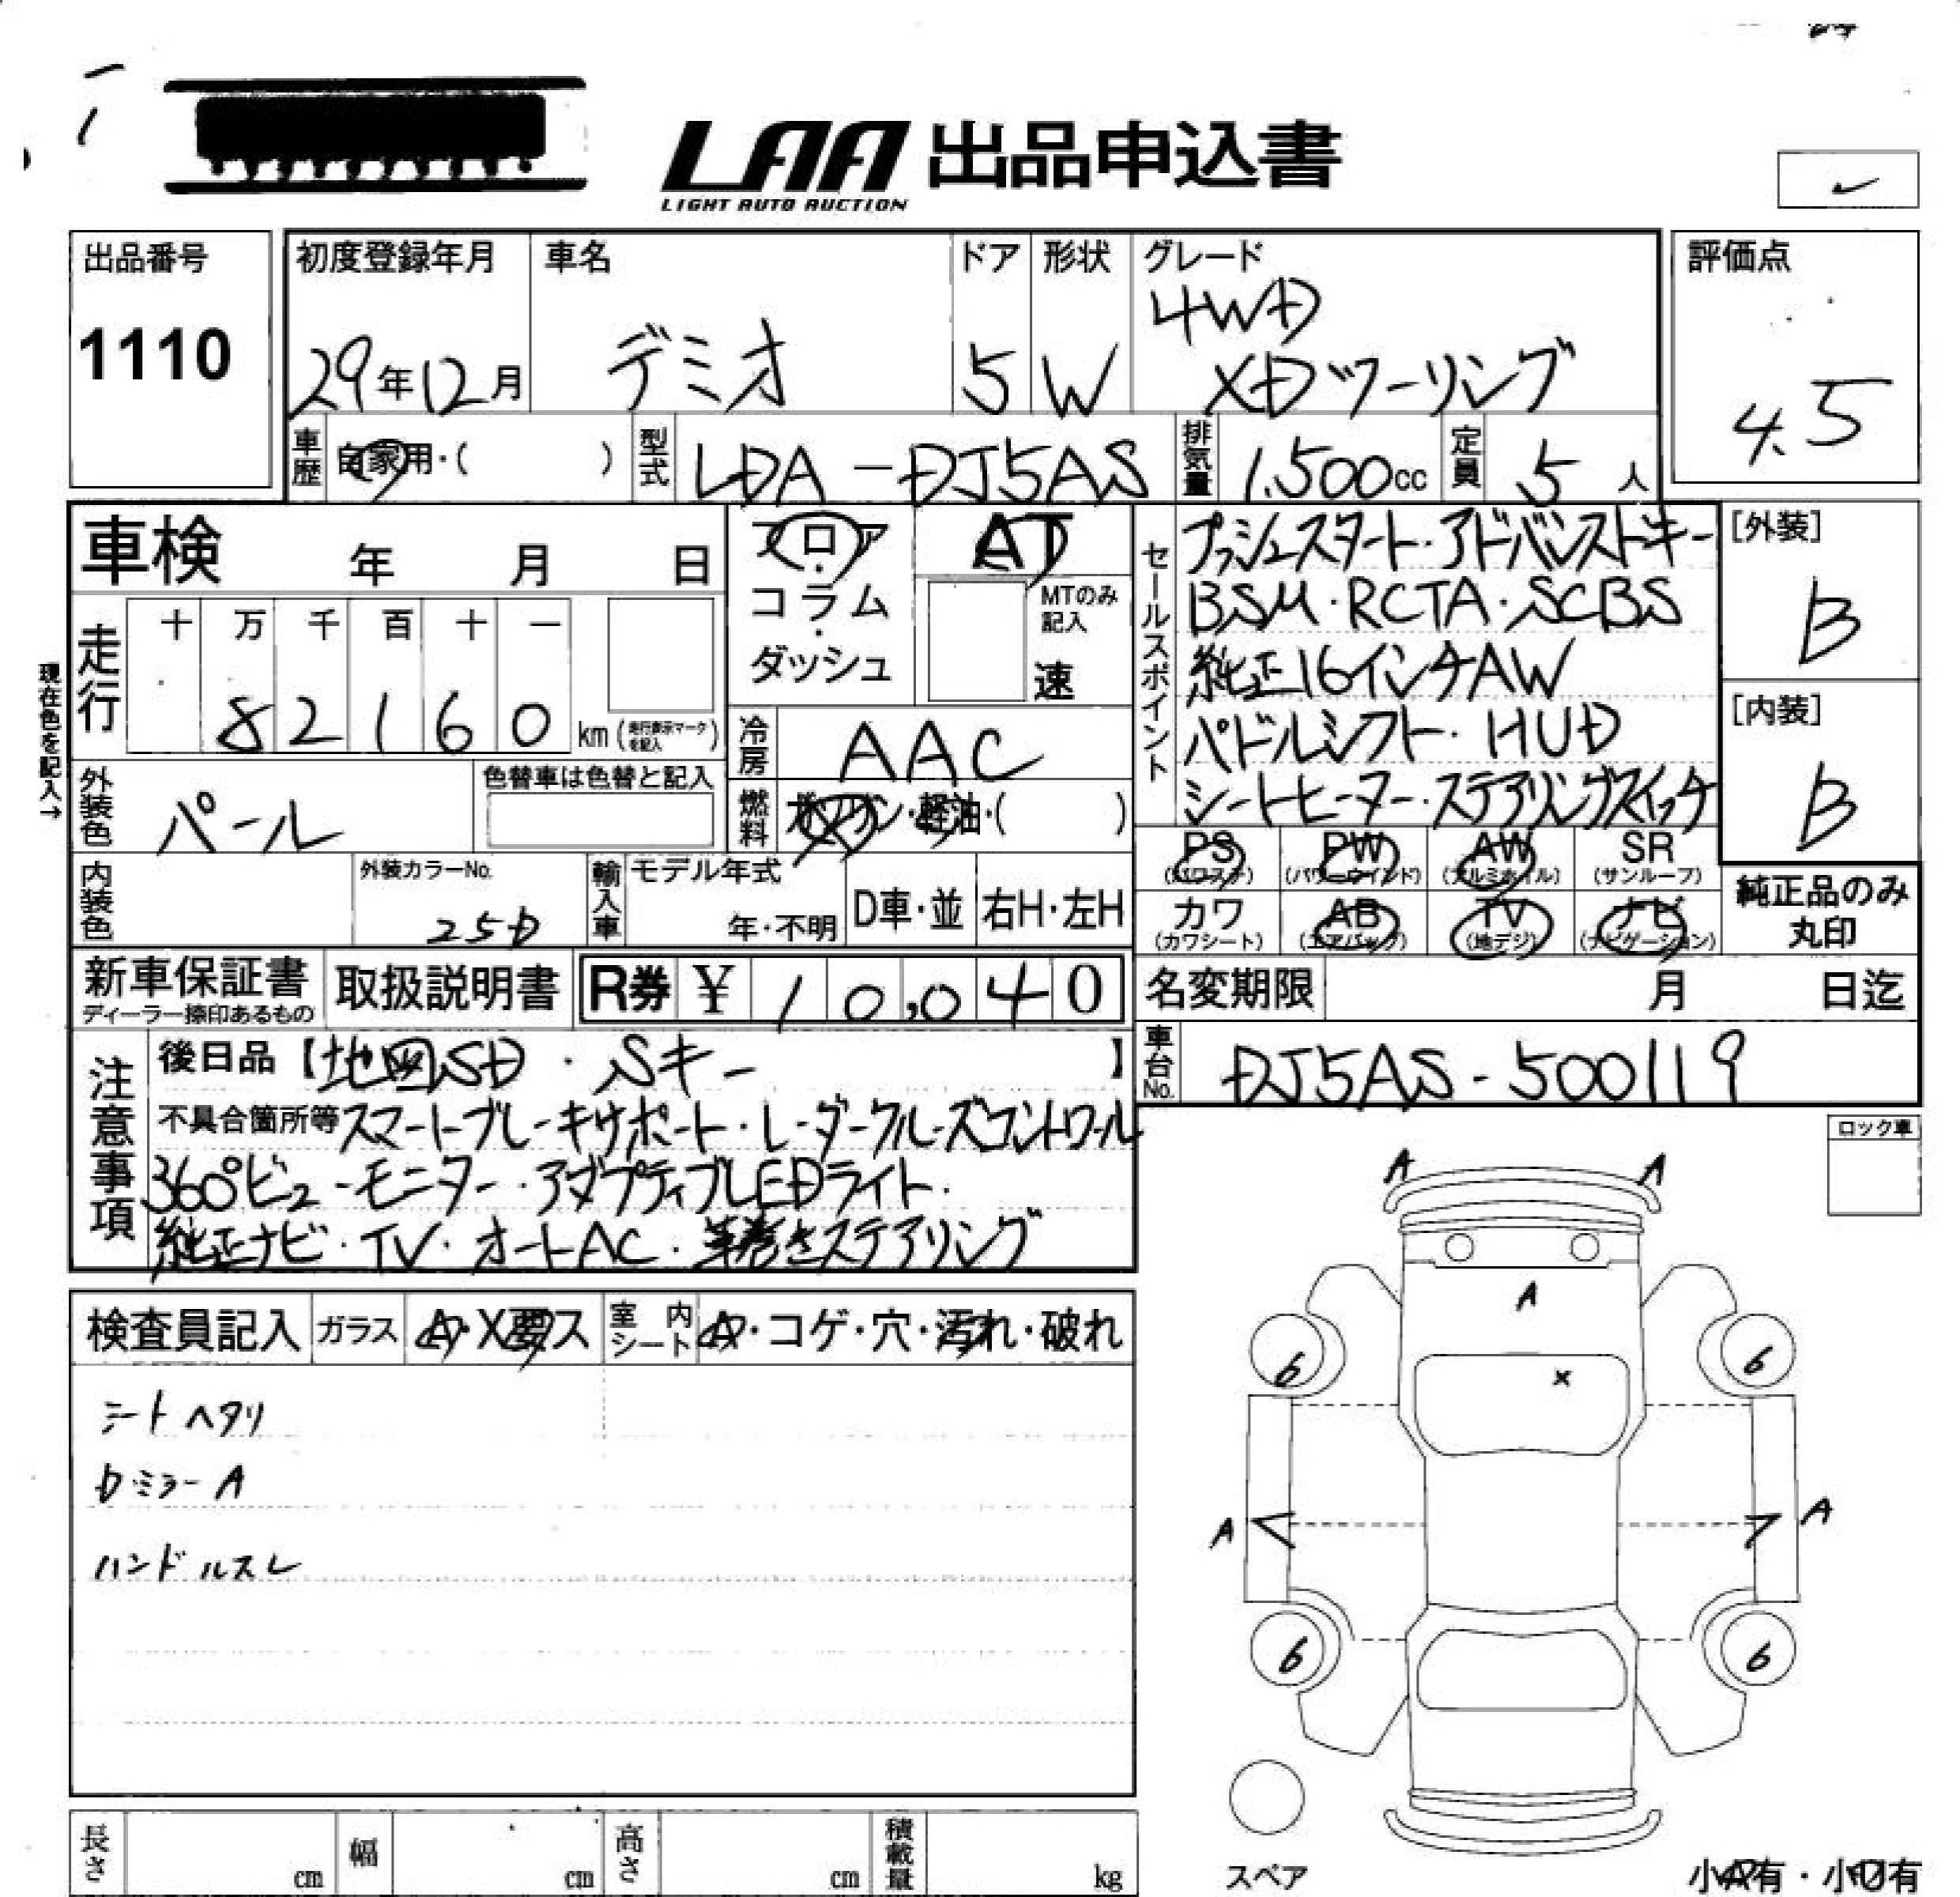 LAA 出品申込書
LIGHT AUTO AUCTION
出品番号
1110
初度登録年月
29年12月
車名
デミオ
ドア
5
形状
W
グレード
4WD
XDツーリング
評価点
4.5
車歴 自家用・( )
型式 LDA-DJ5AS
排気量 1.500cc
定員 5人
車検 年 月 日
フロア・コラム・ダッシュ
AT
MTのみ記入
速
セールスポイント
プッシュスタート・アドバンストキー
BSM・RCTA・SCBS
純正16インチAW
パドルシフト・HUD
シートヒーター・ステアリングスイッチ
[外装]
B
[内装]
B
走行 十 万 千 百 十 一
8 2 1 6 0 km (走行表示マークを記入)
現在色を記入→
冷房 AAC
外装色 パール
色替車は色替と記入
燃料 ガソリン・軽油・( )
PS (パワステ) PW (パワーウインド) AW (アルミホイル) SR (サンルーフ)
カワ (カワシート) AB (エアバック) TV (地デジ) ナビ (ナビゲーション)
純正品のみ丸印
内装色
外装カラーNo.
25D
輸入車 モデル年式
年・不明
D車・並
右H・左H
新車保証書
ディーラー捺印あるもの
取扱説明書
R券 ¥ 10,040
名変期限 月 日迄
車台No. DJ5AS-500119
注意事項
後日品【地図SD・Sキー】
不具合箇所等 スマートブレーキサポート・レーダークルーズコントロール
360°ビューモニター・アダプティブLEDライト・
純正ナビ・TV・オートAC・革巻きステアリング
ロック車
検査員記入 ガラス A・X要ス 室内シート A・コゲ・穴・汚れ・破れ
シートヘタリ
Dミラー A
ハンドルスレ
A A
A
×
6 6
A A
6 6
スペア
小A有・小U有
長さ cm 幅 cm 高さ cm 積載量 kg